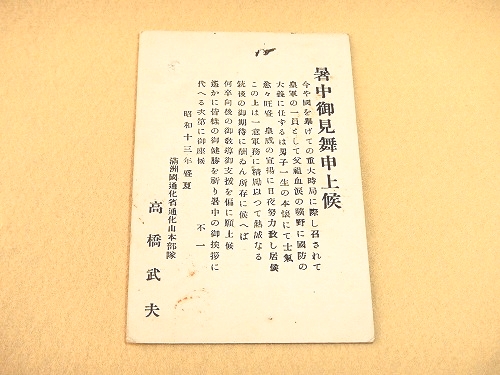 暑中御見舞申上候
今や國を擧げての重大時局に際し召されて
皇軍の一員として父祖血涙の曠野に國防の
大義に任するは男子一生の本懷にて士氣
愈々旺盛 皇威の宣揚に日夜努力致し居候
この上は一意軍務に精勵以つて熱誠なる
銃後の御期待に酬ゐん所存に候へば
何卒向後の御教導御支援を偏に願上候
遙かに皆樣の御健勝を祈り暑中の御挨拶に
代へる次第に御座候 不一
昭和十三年盛夏
滿洲國通化省通化山本部隊
高橋武夫